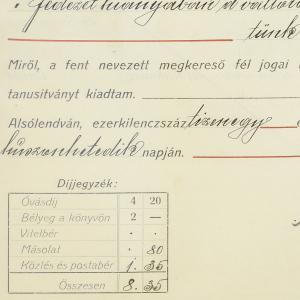 fedezet hiányában a váltó
tünk
Miről, a fent nevezett megkereső fél jogai
tanusitványt kiadtam.
Alsólendván, ezerkilenczszáz tizenegy
huszonhetedik napján.
Díjjegyzék:
Óvásdíj 4 20
Bélyeg a könyvön 2 —
Vitelbér . .
Másolat . 80
Közlés és postabér 1. 35
Összesen 8. 35